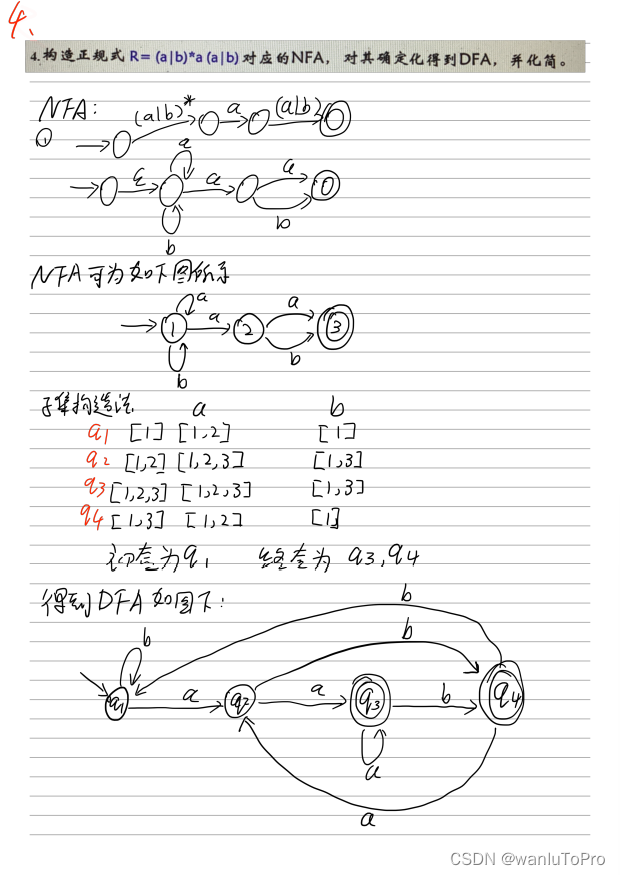 4、
4.构造正规式 R= (a|b)*a (a|b) 对应的NFA, 对其确定化得到DFA, 并化简。
NFA:
① (a|b)* a (a|b)
a
ε a a
b b
NFA可为如下图所示
a a a
1 2 3
b b
子集构造法 a b
q1 [1] [1,2] [1]
q2 [1,2] [1,2,3] [1,3]
q3 [1,2,3] [1,2,3] [1,3]
q4 [1,3] [1,2] [1]
初态为q1 终态为 q3,q4
得到DFA如图下:
b
b b
q1 a q2 a q3 b q4
a
a
CSDN @wanluToPro